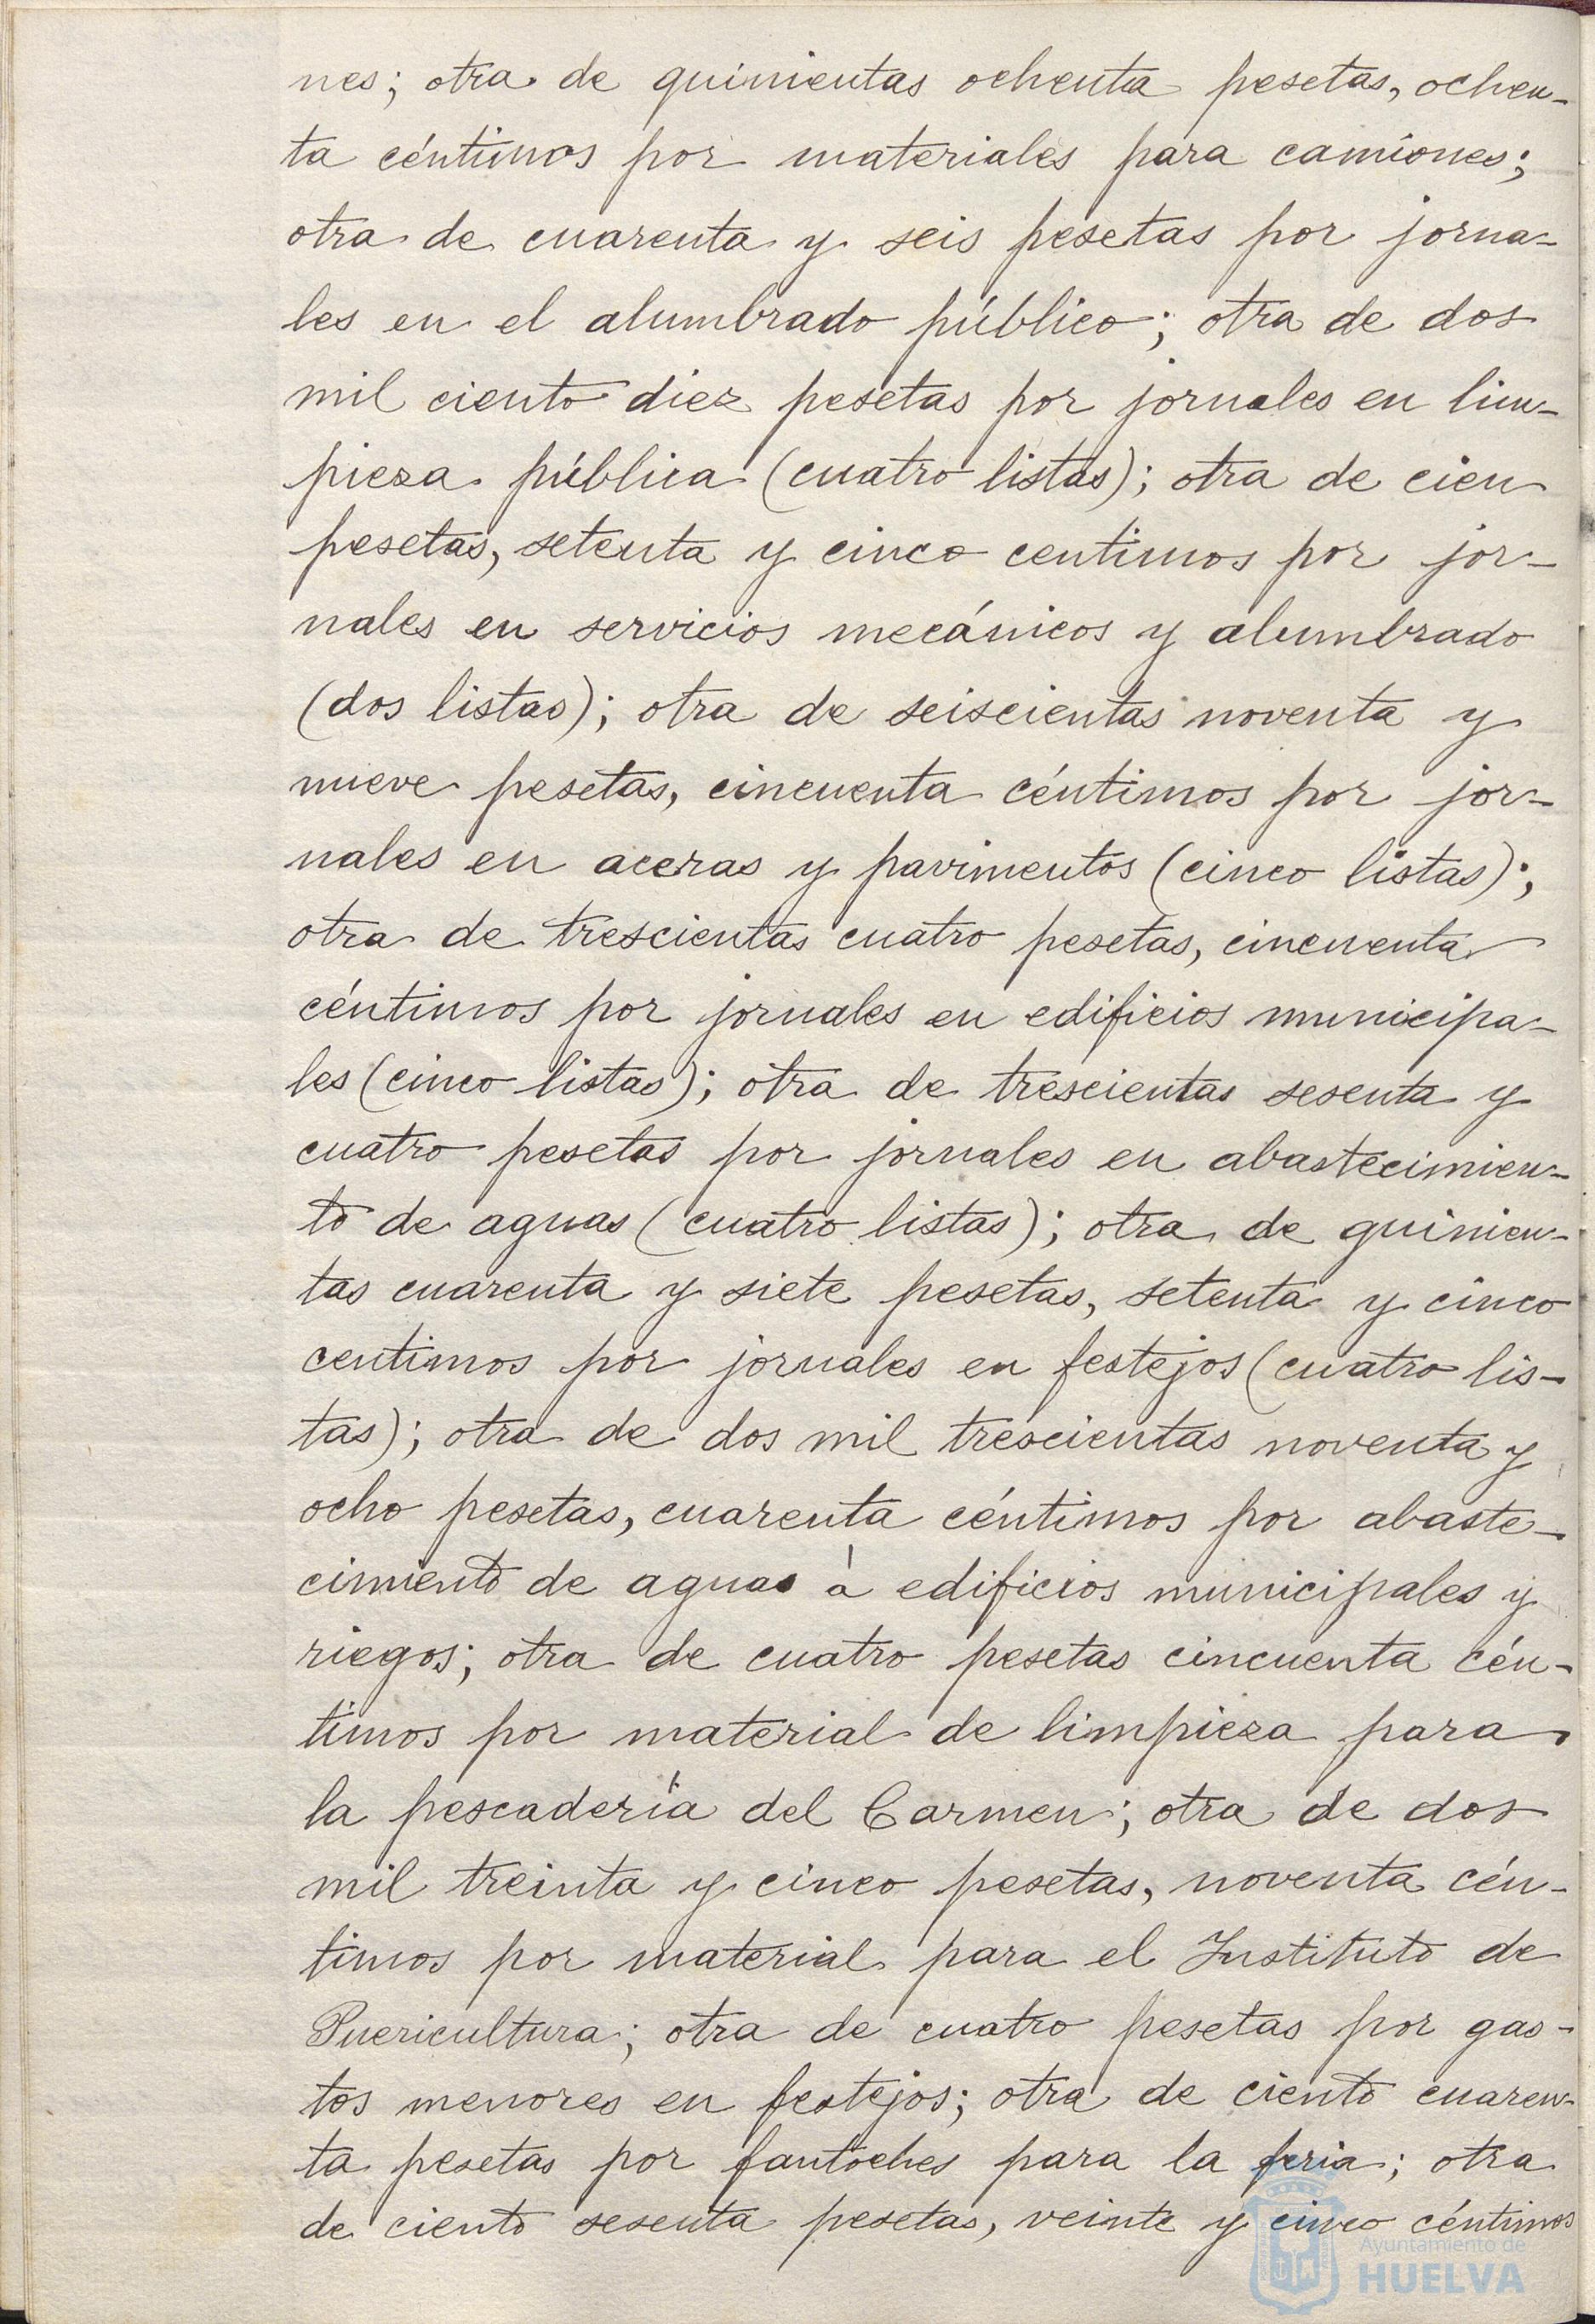 nes; otra de quinientas ochenta pesetas, ochen-
ta céntimos por materiales para camiones;
otra de cuarenta y seis pesetas por jorna-
les en el alumbrado público; otra de dos
mil ciento diez pesetas por jornales en lim-
pieza pública (cuatro listas); otra de cien
pesetas, setenta y cinco centimos por jor-
nales en servicios mecánicos y alumbrado
(dos listas); otra de seiscientas noventa y
nueve pesetas, cincuenta céntimos por jor-
nales en aceras y pavimentos (cinco listas);
otra de trescientas cuatro pesetas, cincuenta
céntimos por jornales en edificios municipa-
les (cinco listas); otra de trescientas sesenta y
cuatro pesetas por jornales en abastecimien-
to de aguas (cuatro listas); otra de quinien-
tas cuarenta y siete pesetas, setenta y cinco
centimos por jornales en festejos (cuatro lis-
tas); otra de dos mil trescientas noventa y
ocho pesetas, cuarenta céntimos por abaste-
cimiento de aguas à edificios municipales y
riegos; otra de cuatro pesetas cincuenta cén-
timos por material de limpieza para
la pescadería del Carmen; otra de dos
mil treinta y cinco pesetas, noventa cén-
timos por material para el Instituto de
Puericultura; otra de cuatro pesetas por gas-
tos menores en festejos; otra de ciento cuaren-
ta pesetas por fantoches para la feria; otra
de ciento sesenta pesetas, veinte y cinco céntimos
Ayuntamiento de
HUELVA